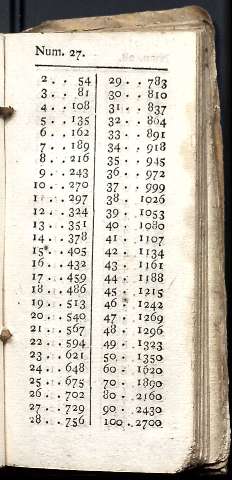 Num. 27.
2 . . 54
3 . . 81
4 . . 108
5 . . 135
6 . . 162
7 . . 189
8 . . 216
9 . . 243
10 . . 270
11 . . 297
12 . . 324
13 . . 351
14 . . 378
15 . . 405
16 . . 432
17 . . 459
18 . . 486
19 . . 513
20 . . 540
21 . . 567
22 . . 594
23 . . 621
24 . . 648
25 . . 675
26 . . 702
27 . . 729
28 . . 756
29 . . 783
30 . . 810
31 . . 837
32 . . 864
33 . . 891
34 . . 918
35 . . 945
36 . . 972
37 . . 999
38 . 1026
39 . 1053
40 . 1080
41 . 1107
42 . 1134
43 . 1161
44 . 1188
45 . 1215
46 . 1242
47 . 1269
48 . 1296
49 . 1323
50 . 1350
60 . 1620
70 . 1890
80 . 2160
90 . 2430
100 . 2700